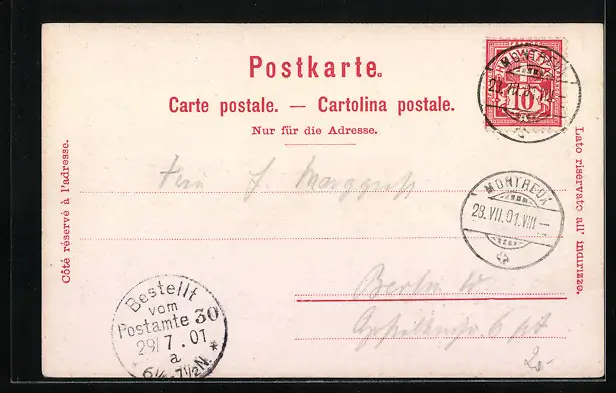 Postkarte.
Carte postale. — Cartolina postale.
Nur für die Adresse.
Côté réservé à l'adresse.
Lato riservato all' indirizzo.
10
MONTREUX
MONTREUX
28.VII.01.VIII—
Berlin W
2.-
Bestellt
vom
Postamte 30
29/7.01
a
* 6½-7½N. *